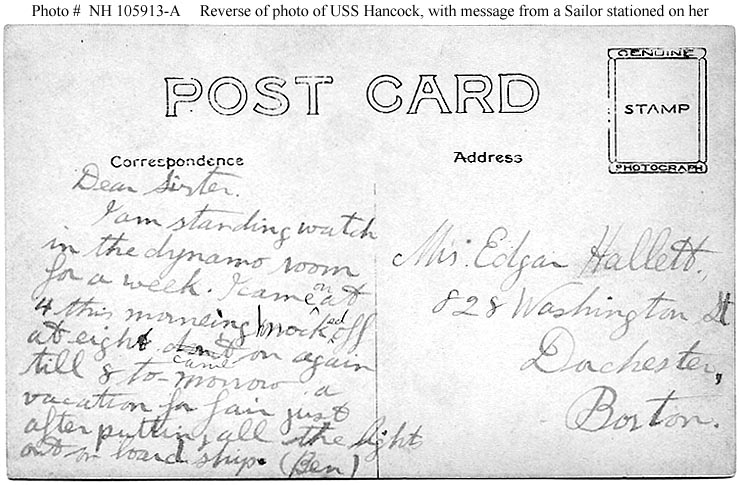 Photo # NH 105913-A Reverse of photo of USS Hancock, with message from a Sailor stationed on her
POST CARD
GENUINE
STAMP
PHOTOGRAPH
Correspondence
Address
Dear Sister.
I am standing watch
in the dynamo room
for a week. I came on at
4 this morneing knocked off
at eight on again
till 8 to-morrow a
vacation for fair just
after putting all the lights
out on board ship. (Ben)
Mrs. Edgar Hallett.,
828 Washington St
Dochester,
Boston.